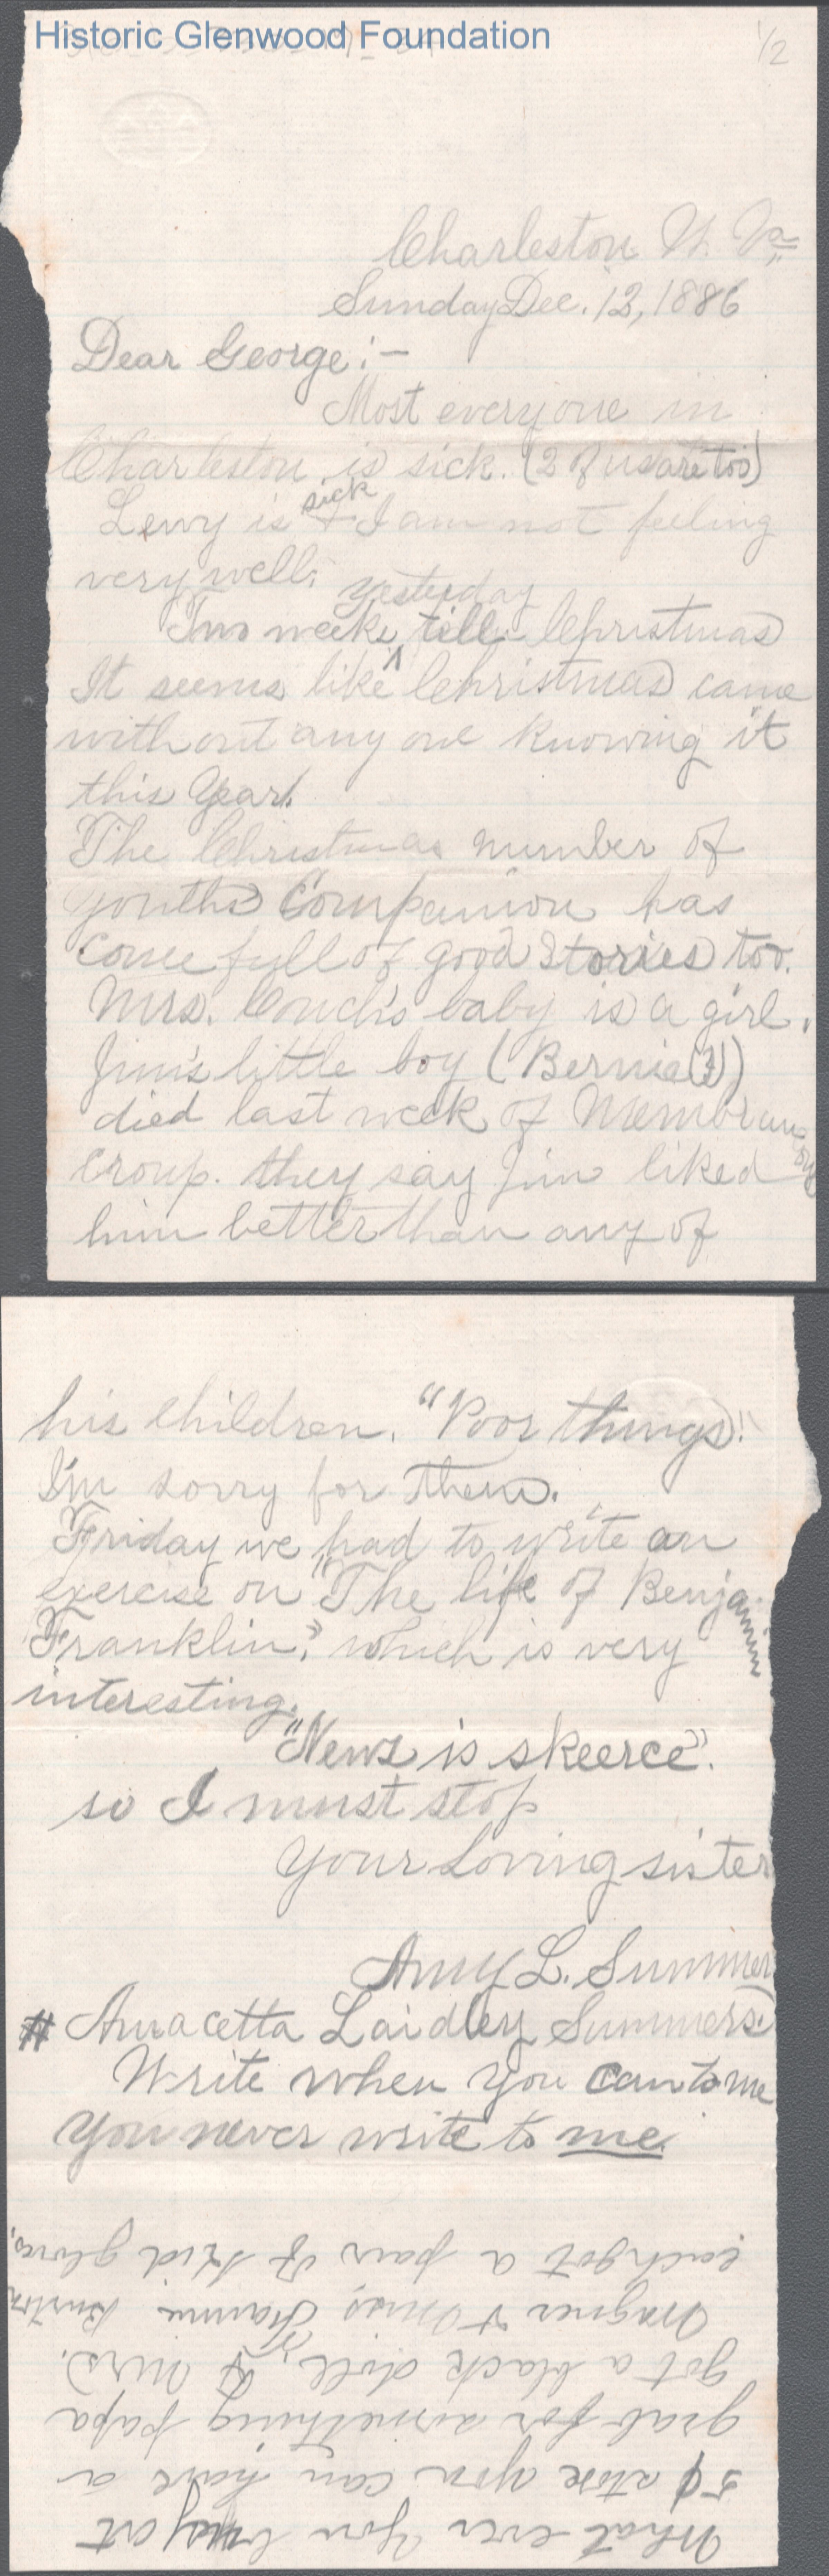 Historic Glenwood Foundation
1/2
Charleston W. Va
Sunday Dec. 12, 1886
Dear George:-
Most everyone in
Charleston is sick. (2 of us are too)
Lewy is sick & I am not feeling
very well.
Two weeks yesterday till Christmas
It seems like Christmas came
without any one knowing it
this Year.
The Christmas number of
youths Companion has
come full of good stories too.
Mrs. Couch's baby is a girl.
Jim's little boy (Bernie(?))
died last week of Membranous
Croup. they say Jim liked
him better than any of
his children. "Poor things!"
I'm sorry for them.
Friday we had to write an
exercise on "The life of Benjamin
Franklin," which is very
interesting.
"News is skeerce".
so I must stop
Your Loving sister
Amy L. Summer
# Anacetta Laidley Summers)
Write when you can to me
You never write to me.
What ever you buy at
5¢ store you can have a
grab for something papa
got a black doll, & Mrs.
Wagner & Miss Fannie
each got a pair of kid gloves.